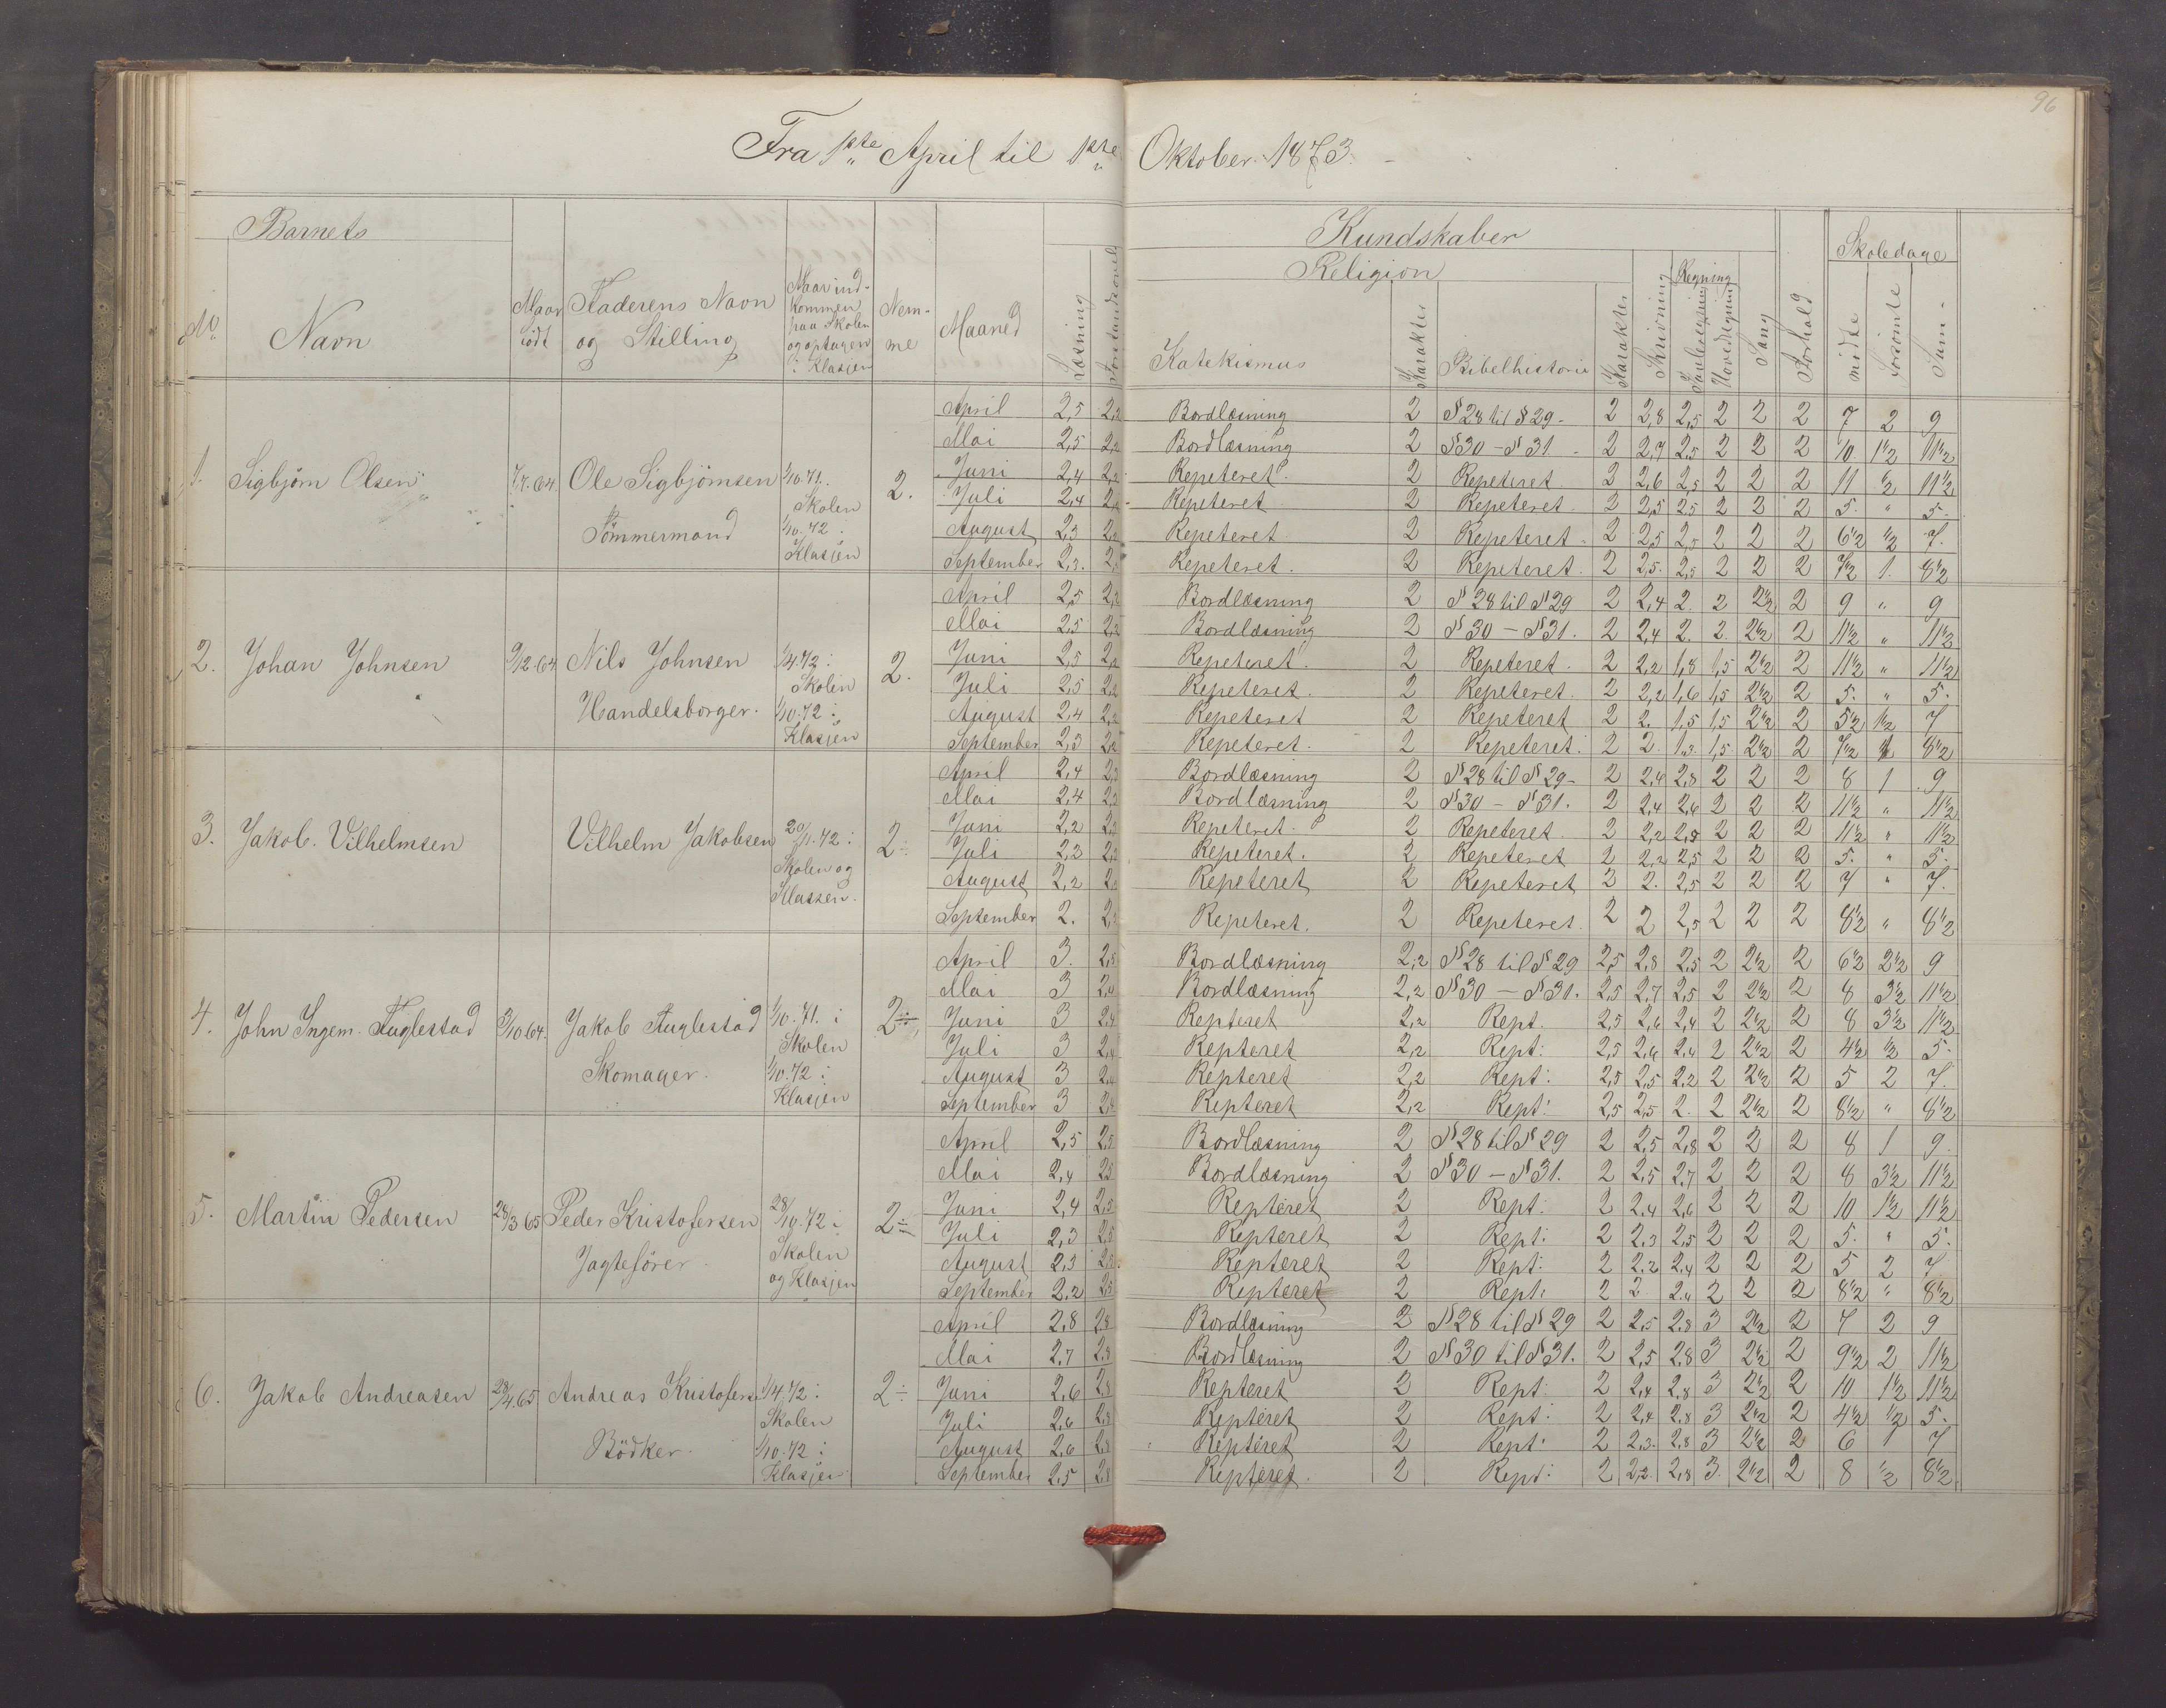 96
Fra 1ste April til 1ste Oktober 1873.
Barnets
Kundskaber
Skoledage
Religion
Regning
No
Navn
Naar født
Faderens Navn og Stilling
Naar ind-
kommen
paa Skolen
og optagen
i Klasjen
Nem-
me
Maaned
Læsning
Forstandsøvels
Katekismus
Karakter
Bibelhistorie
Karakter
Skrivning
Tavleregning
Hovedregning
Sang
Forhold
mødte
forsømte
Sum
1. Sigbjørn Olsen 7/7.64. Ole Sigbjørnsen Tømmermand 1/10.71. Skolen 1/10.72 i Klasjen 2.
April 2,5 2,2 Bordlæsning 2 § 28 til § 29 2 2,8 2,5 2 2 2 7 2 9
Mai 2,5 2,2 Bordlæsning 2 § 30 - § 31 2 2,7 2,5 2 2 2 10 1 1/2 11 1/2
Juni 2,4 2,2 Repeteret 2 Repeteret 2 2,6 2,5 2 2 2 11 1/2 11 1/2
Juli 2,4 2,2 Repeteret 2 Repeteret 2 2,5 2,5 2 2 2 5. " 5.
August 2,3 2,2 Repeteret 2 Repeteret 2 2,5 2,5 2 2 2 6 1/2 1/2 7.
September 2,3. Repeteret. 2 Repeteret. 2 2,5. 2,5 2 2 2 7 1/2 1. 8 1/2
2. Johan Johnsen 9/12.64 Nils Johnsen Handelsborger. 1/4.72 i Skolen 1/10.72 i Klasjen 2.
April 2,5 2,2 Bordlæsning 2 § 28 til § 29 2 2,4 2. 2 2 1/2 2 9 " 9
Mai 2,5 2,2 Bordlæsning 2 § 30 - § 31. 2 2,4 2. 2. 2 1/2 2 11 1/2 " 11 1/2
Juni 2,5 2,2 Repeteret. 2 Repeteret. 2 2,2 1,8 1,5 2 1/2 2 11 1/2 " 11 1/2
Juli 2,5 2,2 Repeteret. 2 Repeteret. 2 2,2 1,6 1,5 2 1/2 2 5. " 5.
August 2,4 2,2 Repeteret 2 Repeteret 2 2. 1,5 1,5 2 1/2 2 5 1/2 1 1/2 7
September 2,3 2,2 Repeteret. 2 Repeteret. 2 2. 1,3. 1,5. 2 1/2 2 7 1/2 1 8 1/2
3. Jakob Vilhelmsen Vilhelm Jakobsen 20/1.72 i Skolen og Klassen. 2÷
April 2,4 2,2 Bordlæsning 2 § 28 til § 29 - 2 2,4 2,8 2 2 2 8 1 9
Mai 2,4 2,2 Bordlæsning 2 § 30 - § 31. 2 2,4 2,6 2 2 2 11 1/2 " 11 1/2
Juni 2,2 2,2 Repeteret. 2 Repeteret. 2 2,2 2,5 2 2 2 11 1/2 " 11 1/2
Juli 2,2 2,2 Repeteret. 2 Repeteret 2 2,2 2,5 2 2 2 5. " 5.
August 2,2 Repeteret 2 Repeteret 2 2. 2,5 2 2 2 7 " 7.
September 2. Repeteret. 2 Repeteret. 2 2 2,5 2 2 2 8 1/2 " 8 1/2
4. John Ingem. Fuglestad 3/10 64. Jakob Fuglestad Skomager. 1/10.71. i Skolen 1/10.72 i Klasjen 2÷
April 3. 2,5 Bordlæsning 2,2 § 28 til § 29 2,5 2,8 2,5 2 2 1/2 2 6 1/2 2 1/2 9
Mai 3 2,4 Bordlæsning 2,2 § 30 - § 31. 2,5 2,7 2,5 2 2 1/2 2 8 3 1/2 11 1/2
Juni 3 2,4 Repteret 2,2 Rept. 2,5 2,6 2,4 2 2 1/2 2 8 3 1/2 11 1/2
Juli 3 2,4 Repteret 2,2 Rept: 2,5 2,6 2,4 2 2 1/2 2 4 1/2 1/2 5.
August 3 2,4 Repteret 2,2 Rept: 2,5 2,5 2,2 2 2 1/2 2 5 2 7.
September 3 2,4 Repteret 2,2 Rept: 2,5 2,5 2. 2 2 1/2 2 8 1/2 " 8 1/2
5. Martin Pedersen 28/3 65 Peder Kristofersen Jagtefører. 28/10.72 i Skolen og Klasjen 2÷
April 2,5 2,5 Bordlæsning 2 § 28 til § 29 2 2,5 2,8 2 2 2 8 1 9.
Mai 2,4 2,5 Bordlæsning 2 § 30 - § 31. 2 2,5 2,7 2 2 2 8 3 1/2 11 1/2
Juni 2,4 2,5 Repteret 2 Rept: 2 2,4 2,6 2 2 2 10 1 1/2 11 1/2
Juli 2,3 2,5 Repteret 2 Rept: 2 2,3 2,5 2 2 2 5. " 5.
August 2,3 2,5 Repteret 2 Rept: 2 2,2 2,4 2 2 2 5 2 7
September 2,2 2,5 Repteret 2 Rept: 2 2 2,4 2 2 2 8 1/2 " 8 1/2
6. Jakob Andreasen 28/4.65 Andreas Kristofers. Bødker. 1/4.72 i Skolen 1/10.72 i Klasjen 2÷
April 2,8 2,8 Bordlæsning 2 § 28 til § 29 2 2,5 2,8 3 2 1/2 2 7 2 9
Mai 2,7 2,8 Bordlæsning 2 § 30 til § 31. 2 2,5 2,8 3 2 1/2 2 9 1/2 2 11 1/2
Juni 2,6 2,8 Repteret 2 Rept: 2 2,4 2,8 3 2 1/2 2 10 1 1/2 11 1/2
Juli 2,6 2,8 Repteret 2 Rept: 2 2,4 2,8 3 2 1/2 2 4 1/2 1/2 5.
August 2,6 2,8 Repteret 2 Rept: 2 2,3. 2,8 3 2 1/2 2 6 1 7
September 2,5 2,8 Repteret. 2 Rept: 2 2,2. 2,8 3. 2 1/2 2 8 1/2 8 1/2.